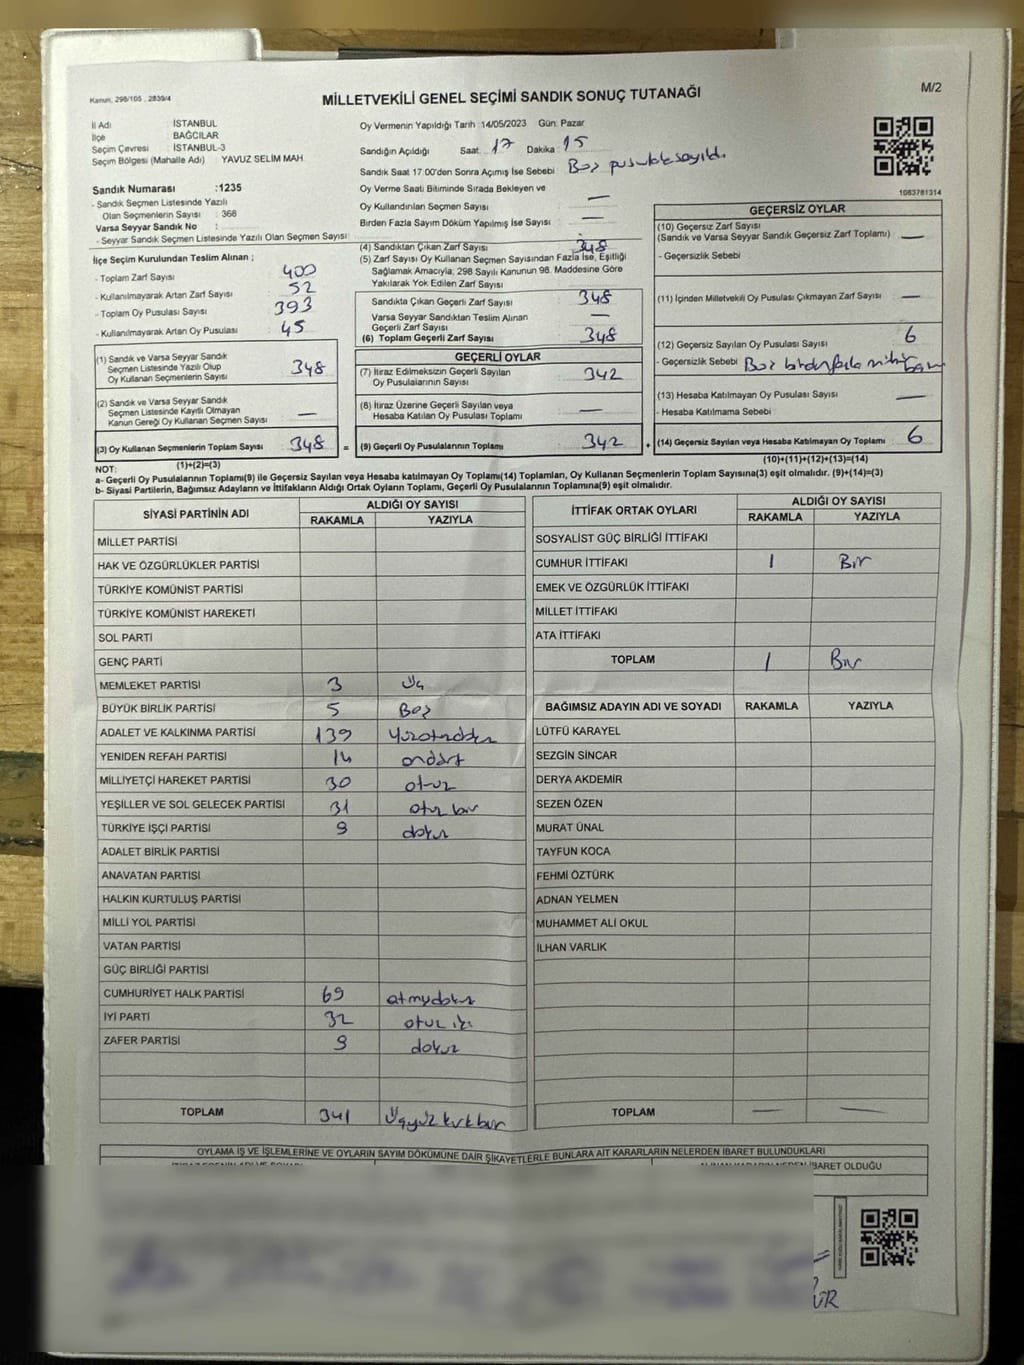 Kanun: 298/105 , 2839/4
MİLLETVEKİLİ GENEL SEÇİMİ SANDIK SONUÇ TUTANAĞI
M/2
İl Adı İSTANBUL
İlçe BAĞCILAR
Seçim Çevresi : İSTANBUL-3
Seçim Bölgesi (Mahalle Adı) YAVUZ SELİM MAH.
Sandık Numarası :1235
- Sandık Seçmen Listesinde Yazılı
Olan Seçmenlerin Sayısı : 368
Varsa Seyyar Sandık No :
- Seyyar Sandık Seçmen Listesinde Yazılı Olan Seçmen Sayısı
Oy Vermenin Yapıldığı Tarih :14/05/2023 Gün: Pazar
Sandığın Açıldığı Saat: 17 Dakika 15
Sandık Saat 17:00'den Sonra Açılmış İse Sebebi Boş pusulalar sayıldı.
Oy Verme Saati Bitiminde Sırada Bekleyen ve
Oy Kullandırılan Seçmen Sayısı —
Birden Fazla Sayım Döküm Yapılmış İse Sayısı —
1063781314
İlçe Seçim Kurulundan Teslim Alınan ;
- Toplam Zarf Sayısı : 400
- Kullanılmayarak Artan Zarf Sayısı : 52
- Toplam Oy Pusulası Sayısı : 393
- Kullanılmayarak Artan Oy Pusulası : 45
(1) Sandık ve Varsa Seyyar Sandık
Seçmen Listesinde Yazılı Olup
Oy Kullanan Seçmenlerin Sayısı 348
(2) Sandık ve Varsa Seyyar Sandık
Seçmen Listesinde Kayıtlı Olmayan
Kanun Gereği Oy Kullanan Seçmen Sayısı —
(3) Oy Kullanan Seçmenlerin Toplam Sayısı 348 =
(1)+(2)=(3)
(4) Sandıktan Çıkan Zarf Sayısı 348
(5) Zarf Sayısı Oy Kullanan Seçmen Sayısından Fazla İse, Eşitliği
Sağlamak Amacıyla, 298 Sayılı Kanunun 98. Maddesine Göre
Yakılarak Yok Edilen Zarf Sayısı
Sandıkta Çıkan Geçerli Zarf Sayısı 348
Varsa Seyyar Sandıktan Teslim Alınan
Geçerli Zarf Sayısı —
(6) Toplam Geçerli Zarf Sayısı 348
GEÇERLİ OYLAR
(7) İtiraz Edilmeksizin Geçerli Sayılan
Oy Pusulalarının Sayısı 342
(8) İtiraz Üzerine Geçerli Sayılan veya
Hesaba Katılan Oy Pusulası Toplamı —
(9) Geçerli Oy Pusulalarının Toplamı 342 +
GEÇERSİZ OYLAR
(10) Geçersiz Zarf Sayısı
(Sandık ve Varsa Seyyar Sandık Geçersiz Zarf Toplamı) —
- Geçersizlik Sebebi
(11) İçinden Milletvekili Oy Pusulası Çıkmayan Zarf Sayısı —
(12) Geçersiz Sayılan Oy Pusulası Sayısı 6
- Geçersizlik Sebebi Boş birden fazla
(13) Hesaba Katılmayan Oy Pusulası Sayısı —
- Hesaba Katılmama Sebebi
(14) Geçersiz Sayılan veya Hesaba Katılmayan Oy Toplamı 6
(10)+(11)+(12)+(13)=(14)
NOT:
a- Geçerli Oy Pusulalarının Toplamı(9) ile Geçersiz Sayılan veya Hesaba katılmayan Oy Toplamı(14) Toplamları, Oy Kullanan Seçmenlerin Toplam Sayısına(3) eşit olmalıdır. (9)+(14)=(3)
b- Siyasi Partilerin, Bağımsız Adayların ve İttifakların Aldığı Ortak Oyların Toplamı, Geçerli Oy Pusulalarının Toplamına(9) eşit olmalıdır.
SİYASİ PARTİNİN ADI ALDIĞI OY SAYISI
RAKAMLA YAZIYLA
MİLLET PARTİSİ
HAK VE ÖZGÜRLÜKLER PARTİSİ
TÜRKİYE KOMÜNİST PARTİSİ
TÜRKİYE KOMÜNİST HAREKETİ
SOL PARTİ
GENÇ PARTİ
MEMLEKET PARTİSİ 3 Üç
BÜYÜK BİRLİK PARTİSİ 5 Beş
ADALET VE KALKINMA PARTİSİ 139 Yüzotuzdokuz
YENİDEN REFAH PARTİSİ 14 ondört
MİLLİYETÇİ HAREKET PARTİSİ 30 otuz
YEŞİLLER VE SOL GELECEK PARTİSİ 31 otuz bir
TÜRKİYE İŞÇİ PARTİSİ 9 dokuz
ADALET BİRLİK PARTİSİ
ANAVATAN PARTİSİ
HALKIN KURTULUŞ PARTİSİ
MİLLİ YOL PARTİSİ
VATAN PARTİSİ
GÜÇ BİRLİĞİ PARTİSİ
CUMHURİYET HALK PARTİSİ 69 atmışdokuz
İYİ PARTİ 32 otuz iki
ZAFER PARTİSİ 9 dokuz
TOPLAM 341 Üçyüz kırk bir
İTTİFAK ORTAK OYLARI ALDIĞI OY SAYISI
RAKAMLA YAZIYLA
SOSYALİST GÜÇ BİRLİĞİ İTTİFAKI
CUMHUR İTTİFAKI 1 Bir
EMEK VE ÖZGÜRLÜK İTTİFAKI
MİLLET İTTİFAKI
ATA İTTİFAKI
TOPLAM 1 Bir
BAĞIMSIZ ADAYIN ADI VE SOYADI RAKAMLA YAZIYLA
LÜTFÜ KARAYEL
SEZGİN SİNCAR
DERYA AKDEMİR
SEZEN ÖZEN
MURAT ÜNAL
TAYFUN KOCA
FEHMİ ÖZTÜRK
ADNAN YELMEN
MUHAMMET ALİ OKUL
İLHAN VARLIK
TOPLAM — —
OYLAMA İŞ VE İŞLEMLERİNE VE OYLARIN SAYIM DÖKÜMÜNE DAİR ŞİKAYETLERLE BUNLARA AİT KARARLARIN NELERDEN İBARET BULUNDUKLARI
İBARET OLDUĞU